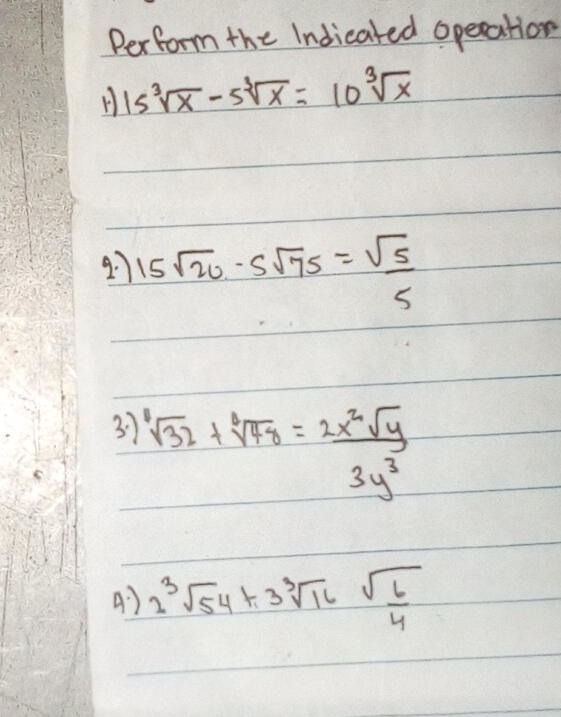 Perform the Indicated operation
1.) 15∛x - 5∛x = 10∛x
2.) 15√20 - 5√75 = √5/5
3.) √32 + √48 = 2x²√y/3y³
4.) 2³√54 + 3³√16 √6/4